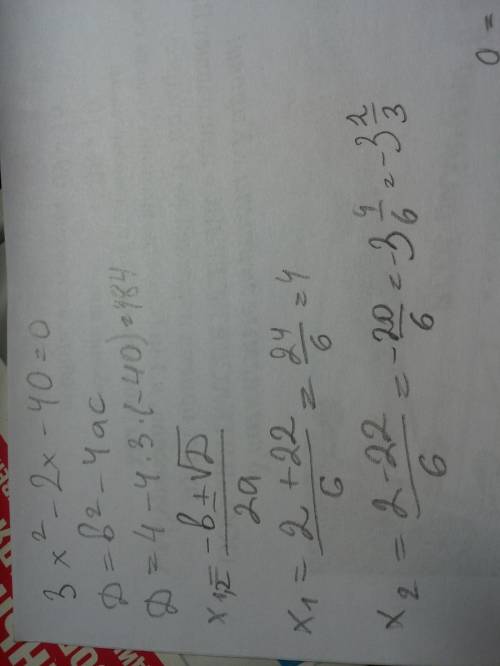 3x² - 2x - 40 = 0
D = b² - 4ac
D = 4 - 4·3·(-40) = 484
x₁,₂ = (-b ± √D) / 2a
x₁ = (2 + 22) / 6 = 24/6 = 4
x₂ = (2 - 22) / 6 = -20/6 = -3 4/6 = -3 2/3
0 =